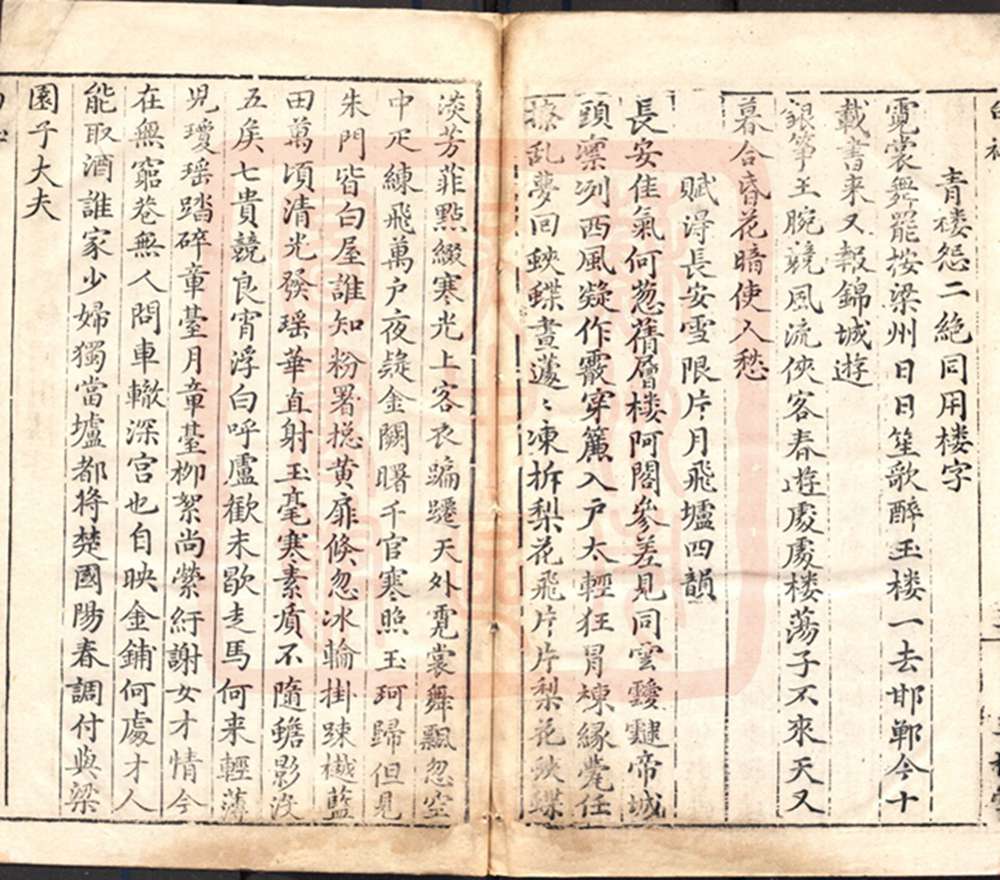 青楼怨二絶同用楼字
霓裳舞罷按梁州日日笙歌醉玉楼一去邯鄲今十
載書来又報錦城遊
銀筝玉腕競風流俠客春遊處處楼蕩子不來天又
暮合昏花暗使人愁
賦淂長安雪限片月飛墟四韻
長安佳氣何葱蒨層楼阿閣參差見同雲靉靆帝城
頭凛冽西風凝作霰穿簾入戸太輕狂冒棟縁甍任
撩乱夢回蛺蝶晝蘧〻凍折梨花飛片片梨花蛺蝶
淡芳菲點綴寒光上客衣蹁躚天外霓裳舞飄忽空
中疋練飛萬户夜疑金闕曙千官寒照玉珂歸但見
朱門皆白屋誰知粉署揔黄扉倏忽冰輪掛踈樾藍
田萬頃清光發瑶華直射玉毫寒素質不隨蟾影没
五矦七貴競良宵浮白呼盧歡未歇走馬何来輕薄
児瓊瑶踏碎章臺月章臺柳絮尚縈紆謝女才情今
在無窮巷無人問車轍深宫也自映金鋪何處才人
能取酒誰家少婦獨當壚都将楚國陽春調付與梁
園子大夫